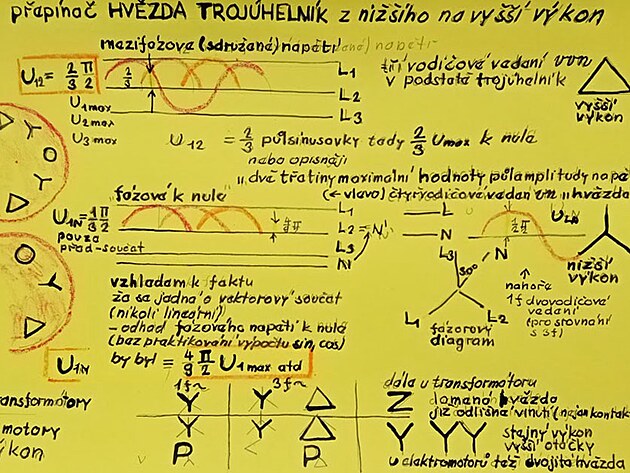 přepínač HVĚZDA TROJÚHELNÍK z nižšího na vyšší výkon
mezifázové (sdružené) napětí
U12 = 2/3 π/2
2/3
L1
L2
L3
U1max
U2max
U3max
vodičové vedení
v podstatě trojúhelník
vyšší
výkon
U12 = 2/3 půlsinusovky tady 2/3 Umax k nule
nebo opisněji
„dvě třetiny maximální hodnoty půlamplitudy napě
fázové k nule
(← vlevo) čtyřvodičové vedení „hvězda
U1N = 4/3 π/2
pouze
před-součet
L1
L2 = N'
L3
N
L
N
L3
30°
N
L1
L2
fázorový
diagram
nižší
výkon
nahoře
1f dvovodičové
vedení
(pro srovnání
s 3f)
vzhladem k faktu
že se jedná o vektorový součet
(nikoli lineární)
-odhad fázového napětí k nule
(bez praktikování výpočtu sin, cos)
by byl = 4/9 π/2 U1max atd
U1N
1f~
3f~
Y
Y
△
Y
Y
△
P
P
ransformátory
motory
ýkon
dále u transformátoru
Z
domená hvězda
již odlišné vinutí (nejen kontak
Y
YY
stejný výkon
vyšší otáčky
u elektromotorů též dvojitá hvězda